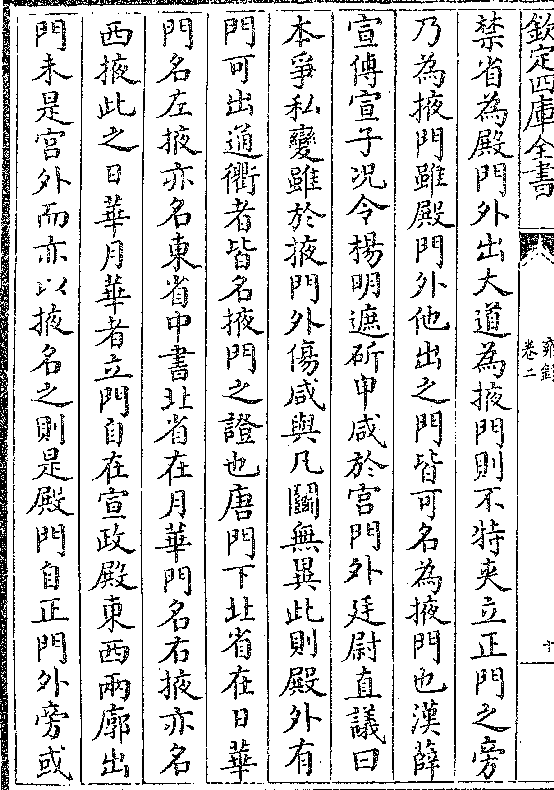 欽定四庫全書
雍錄
卷二
十
禁省為殿門外出大道為掖門則不特夾立正門之旁
乃為掖門雖殿門外他出之門皆可名為掖門也漢薛
宣傳宣子况令楊明遮斫申咸於宮門外廷尉直議曰
本爭私變雖於掖門外傷咸與凡鬭無異此則殿外有
門可出通衢者皆名掖門之證也唐門下北省在日華
門名左掖亦名東省中書北省在月華門名右掖亦名
西掖此之日華月華者立門自在宣政殿東西兩廓出
門未是宫外而亦以掖名之則是殿門自正門外旁或